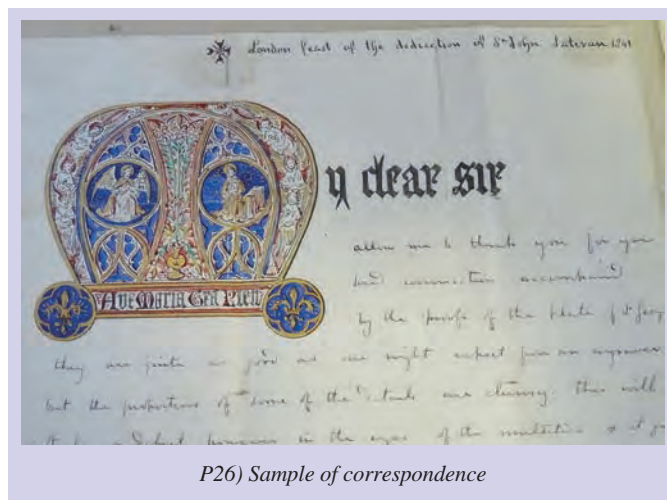 London feast of the dedication of St John Lateran 1841
My dear sir
allow me to thank you for your
kind
AVE MARIA GRA PLENA
by the proofs of the plate of St Georg
they are quite as good as one might expect from an engraver
but the proportions of some of the details are clumsy. this will
in the eyes of the
P26) Sample of correspondence